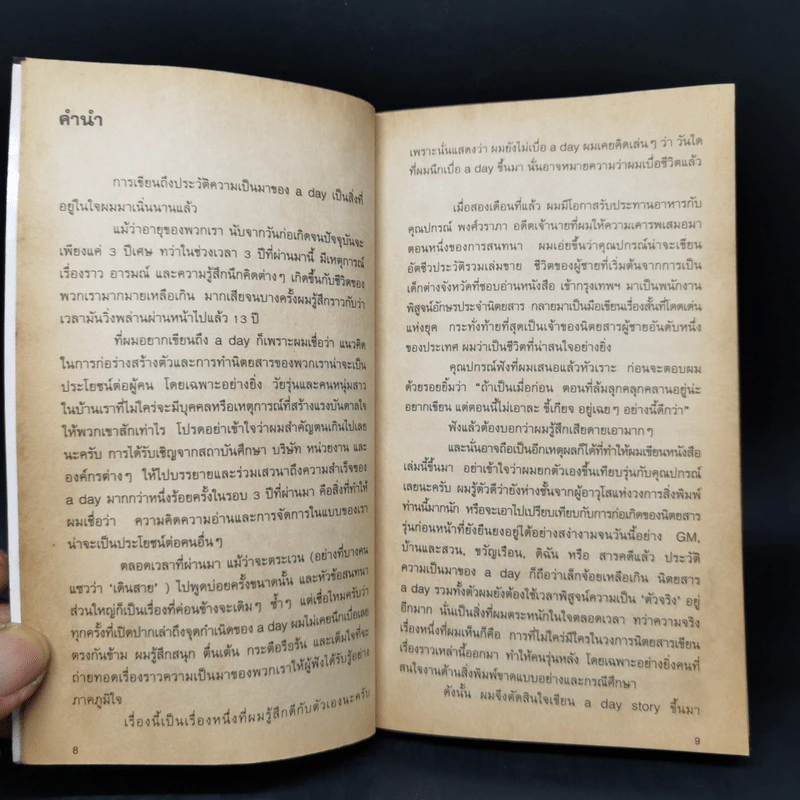 คำนำ
การเขียนถึงประวัติความเป็นมาของ a day เป็นสิ่งที่
อยู่ในใจผมมาเนิ่นนานแล้ว
แม้ว่าอายุของพวกเรา นับจากวันก่อเกิดจนปัจจุบันจะ
เพียงแค่ 3 ปีเศษ ทว่าในช่วงเวลา 3 ปีที่ผ่านมานี้ มีเหตุการณ์
เรื่องราว อารมณ์ และความรู้สึกนึกคิดต่างๆ เกิดขึ้นกับชีวิตของ
พวกเรามากมายเหลือเกิน มากเสียจนบางครั้งผมรู้สึกราวกับว่า
เวลามันวิ่งพล่านผ่านหน้าไปแล้ว 13 ปี
ที่ผมอยากเขียนถึง a day ก็เพราะผมเชื่อว่า แนวคิด
ในการก่อร่างสร้างตัวและการทำนิตยสารของพวกเราน่าจะเป็น
ประโยชน์ต่อผู้คน โดยเฉพาะอย่างยิ่ง วัยรุ่นและคนหนุ่มสาว
ในบ้านเราที่ไม่ใคร่จะมีบุคคลหรือเหตุการณ์ที่สร้างแรงบันดาลใจ
ให้พวกเขาสักเท่าไร โปรดอย่าเข้าใจว่าผมสำคัญตนเกินไปเลย
นะครับ การได้รับเชิญจากสถาบันศึกษา บริษัท หน่วยงาน และ
องค์กรต่างๆ ให้ไปบรรยายและร่วมเสวนาถึงความสำเร็จของ
a day มากกว่าหนึ่งร้อยครั้งในรอบ 3 ปีที่ผ่านมา คือสิ่งที่ทำให้
ผมเชื่อว่า ความคิดความอ่านและการจัดการในแบบของเรา
น่าจะเป็นประโยชน์ต่อคนอื่นๆ
ตลอดเวลาที่ผ่านมา แม้ว่าจะตระเวน (อย่างที่บางคน
แซวว่า 'เดินสาย' ) ไปพูดบ่อยครั้งขนาดนั้น และหัวข้อสนทนา
ส่วนใหญ่ก็เป็นเรื่องที่ค่อนข้างจะเดิมๆ ซ้ำๆ แต่เชื่อไหมครับว่า
ทุกครั้งที่เปิดปากเล่าถึงจุดกำเนิดของ a day ผมไม่เคยนึกเบื่อเลย
ตรงกันข้าม ผมรู้สึกสนุก ตื่นเต้น กระตือรือร้น และเต็มใจที่จะ
ถ่ายทอดเรื่องราวความเป็นมาของพวกเราให้ผู้ฟังได้รับรู้อย่าง
ภาคภูมิใจ
เรื่องนี้เป็นเรื่องหนึ่งที่ผมรู้สึกดีกับตัวเองนะครับ
8
เพราะนั่นแสดงว่า ผมยังไม่เบื่อ a day ผมเคยคิดเล่นๆ ว่า วันใด
ที่ผมนึกเบื่อ a day ขึ้นมา นั่นอาจหมายความว่าผมเบื่อชีวิตแล้ว
เมื่อสองเดือนที่แล้ว ผมมีโอกาสรับประทานอาหารกับ
คุณปกรณ์ พงศ์วราภา อดีตเจ้านายที่ผมให้ความเคารพเสมอมา
ตอนหนึ่งของการสนทนา ผมเอ่ยขึ้นว่าคุณปกรณ์น่าจะเขียน
อัตชีวประวัติรวมเล่มขาย ชีวิตของผู้ชายที่เริ่มต้นจากการเป็น
เด็กต่างจังหวัดที่ชอบอ่านหนังสือ เข้ากรุงเทพฯ มาเป็นพนักงาน
พิสูจน์อักษรประจำนิตยสาร กลายมาเป็นมือเขียนเรื่องสั้นที่โดดเด่น
แห่งยุค กระทั่งท้ายที่สุดเป็นเจ้าของนิตยสารผู้ชายอันดับหนึ่ง
ของประเทศ ผมว่าเป็นชีวิตที่น่าสนใจอย่างยิ่ง
คุณปกรณ์ฟังที่ผมเสนอแล้วหัวเราะ ก่อนจะตอบผม
ด้วยรอยยิ้มว่า "ถ้าเป็นเมื่อก่อน ตอนที่ล้มลุกคลุกคลานอยู่น่ะ
อยากเขียน แต่ตอนนี้ไม่เอาละ ขี้เกียจ อยู่เฉยๆ อย่างนี้ดีกว่า"
ฟังแล้วต้องบอกว่าผมรู้สึกเสียดายเอามากๆ
และนั่นอาจถือเป็นอีกเหตุผลก็ได้ที่ทำให้ผมเขียนหนังสือ
เล่มนี้ขึ้นมา อย่าเข้าใจว่าผมยกตัวเองขึ้นเทียบรุ่นกับคุณปกรณ์
เลยนะครับ ผมรู้ตัวดีว่ายังห่างชั้นจากผู้อาวุโสแห่งวงการสิ่งพิมพ์
ท่านนี้มากนัก หรือจะเอาไปเปรียบเทียบกับการก่อเกิดของนิตยสาร
รุ่นก่อนหน้าที่ยังยืนยงอยู่ได้อย่างสง่างามจนวันนี้อย่าง GM,
บ้านและสวน, ขวัญเรือน, ดิฉัน หรือ สารคดีแล้ว ประวัติ
ความเป็นมาของ a day ก็ถือว่าเล็กจ้อยเหลือเกิน นิตยสาร
a day รวมทั้งตัวผมยังต้องใช้เวลาพิสูจน์ความเป็น 'ตัวจริง' อยู่
อีกมาก นั่นเป็นสิ่งที่ผมตระหนักในใจตลอดเวลา ทว่าความจริง
เรื่องหนึ่งที่ผมเห็นก็คือ การที่ไม่ใคร่มีใครในวงการนิตยสารเขียน
เรื่องราวเหล่านี้ออกมา ทำให้คนรุ่นหลัง โดยเฉพาะอย่างยิ่งคนที่
สนใจงานด้านสิ่งพิมพ์ขาดแบบอย่างและกรณีศึกษา
ดังนั้น ผมจึงตัดสินใจเขียน a day story ขึ้นมา
9